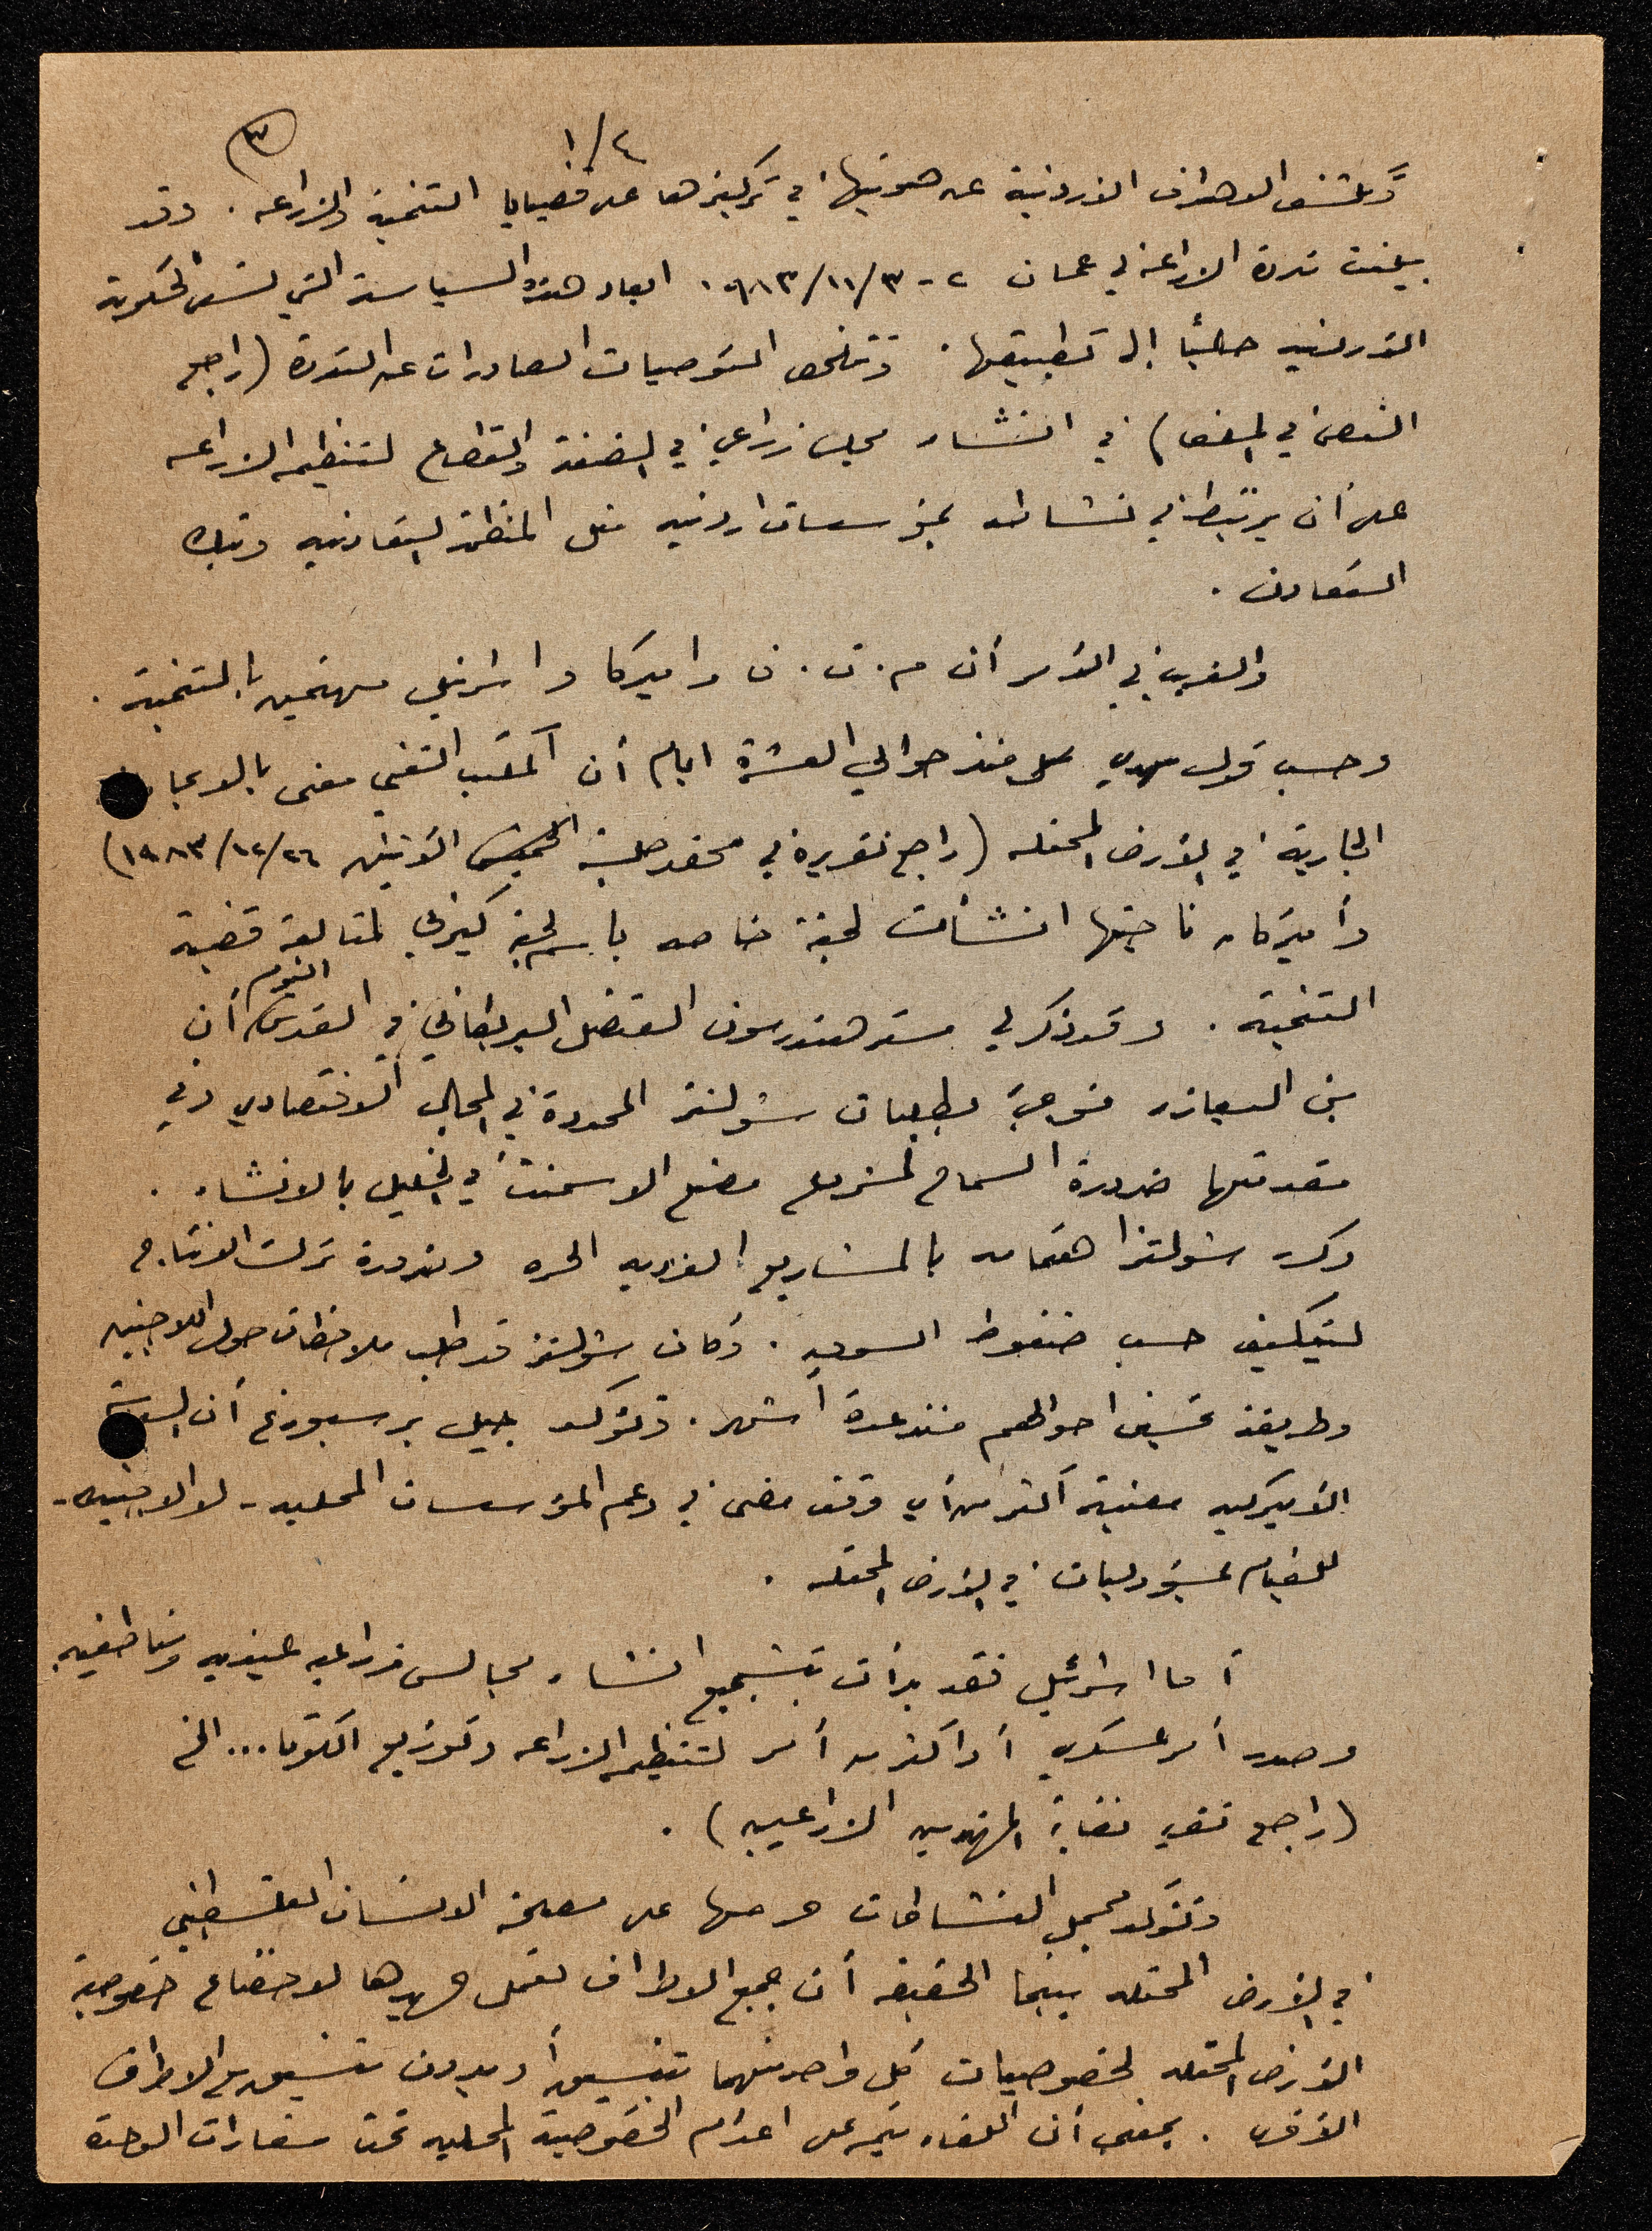 ١/٤
٣
وتكشف الاهداف الاردنية عن هويتها في تركيزها على قضايا التنمية والزراعه. وقد
بينت ندوة الزراعة في عمان ٢ - ٣/١١/٩٨٣. ابعاد هذه السياسة التي تسعى الحكومة
الاردنيه حاليًا الى تطبيقها. وتتلخص التوصيات الصادرات عن الندوة (راجع
النص في الملف) في انشاء مجلس زراعي في الضفة والقطاع لتنظيم الزراعه
على أن يرتبط في نشاطه بمؤسسات اردنيه مثل المنظمة التعاونيه وبنك
التعاون.
والغريب في الأمر أن م. ت. ف واميركا واسرئيل مهتمين بالتنمية.
وحسب قول مهدي لي منذ حوالي العشرة ايام أن المكتب التقني معني بالابحاث
الجارية في الأرض المحتله (راجع تقريره في محضر جلسة الاثنين ٢٦/١٢/١٩٨٣)
وأميركا من ناحيتها انشأت لجنة خاصه باسم لجنة لمتابعة قضية
التنمية. وقد ذكر لي مستر هندرسون القنصل البريطاني في القدس اليوم أن
بين السعازر فوجئ بطلبات شولتز المحددة في المجال الاقتصادي وفي
مقدمتها ضرورة السماح لمشروع مصنع الاسمنت في الخليل بالانشاء.
وكرر شولتز اهتمامه بالمشاريع الفرديه الحره وضرورة ترك الانتاج
ليتكيف حسب ضغوط السوق. وكان شولتز قد طلب ملاحظات حول اللاجئين
وطريقة تحسين احوالهم منذ عدة أشهر. وتؤكد جيل برسبورغ أن
الأميركيه معنية أكثر من أي وقت مضى في دعم المؤسسات المحليه - لا الاجنبيه -
للقيام بمسؤوليات في الأرض المحتله.
أما اسرائيل فقد بدأت بتشجيع انشاء مجالس زراعيه ومناطقيه
وصدر أمر عسكري أو اكثر من أمر لتنظيم الزراعه وتوزيع الكوتا... الخ
(راجع تقرير نقابة المهندسين الزراعيين).
وتؤكد مجمل النشاطات حرصها على مصلحة الانسان الفلسطيني
في الأرض المحتله بينما الحقيقه أن جميع الاطراف تعمل جهدها لاخضاع خصوصية
الأرض المحتله لخصوصيات كل واحد منهما بتنسيق أو بدون تنسيق مع الاطراف
الأخرى. بمعنى أن اللقاء يتم على اعدام الخصوصية المحليه تحت شعارات الوحدة